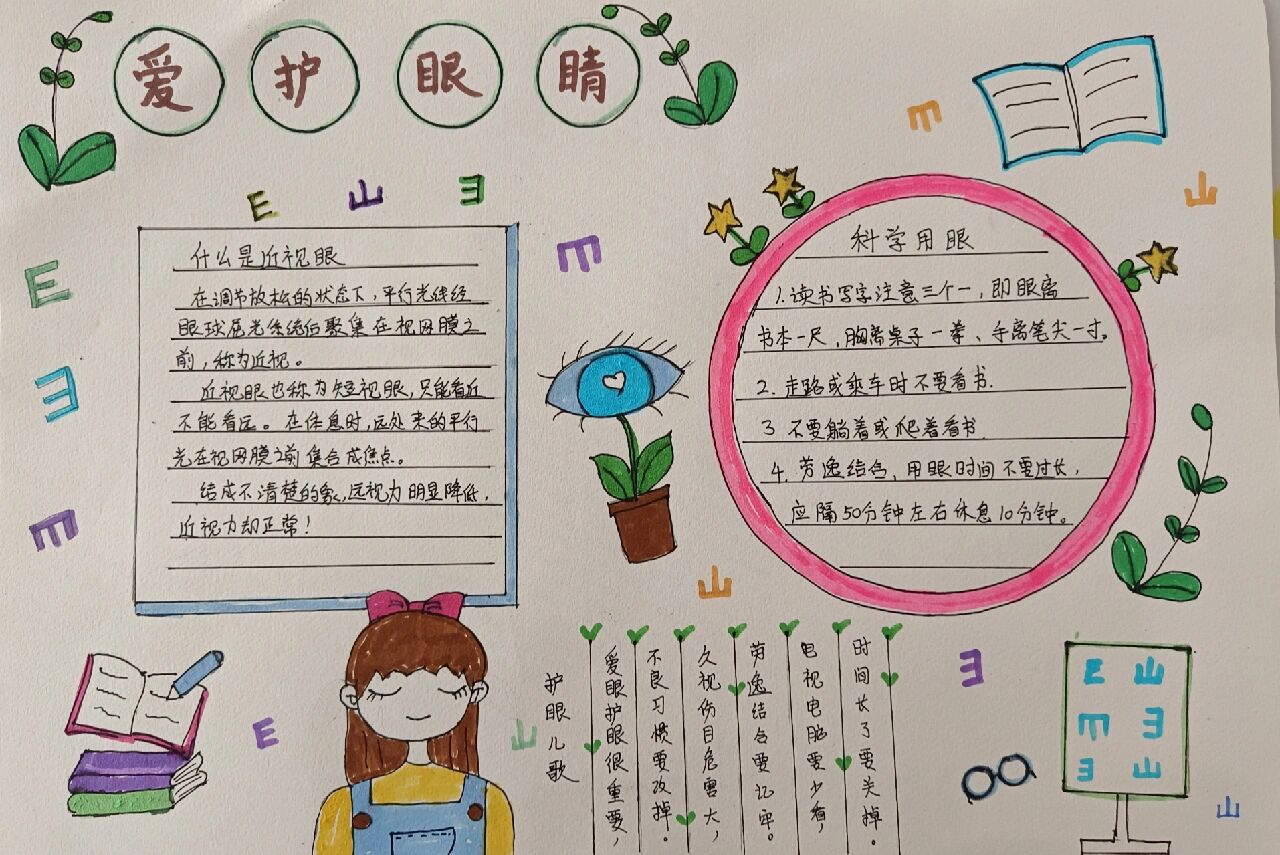 爱护眼睛
E 山 ヨ
什么是近视眼
在调节放松的状态下，平行光线经
眼球屈光系统后聚集在视网膜之
前，称为近视。
近视眼也称为短视眼，只能看近
不能看远。在休息时，远处来的平行
光在视网膜之前集合成焦点。
结成不清楚的象，远视力明显降低，
近视力却正常！
科学用眼
1.读书写字注意三个一，即眼离
书本一尺，胸离桌子一拳、手离笔尖一寸。
2.走路或乘车时不要看书.
3 不要躺着或爬着看书.
4.劳逸结合，用眼时间不要过长，
应隔50分钟左右休息10分钟。
护眼儿歌
爱眼护眼很重要，
不良习惯要改掉。
久视伤目危害大，
劳逸结合要记牢。
电视电脑要少看，
时间长了要关掉。
E 山
m ヨ
ヨ 山